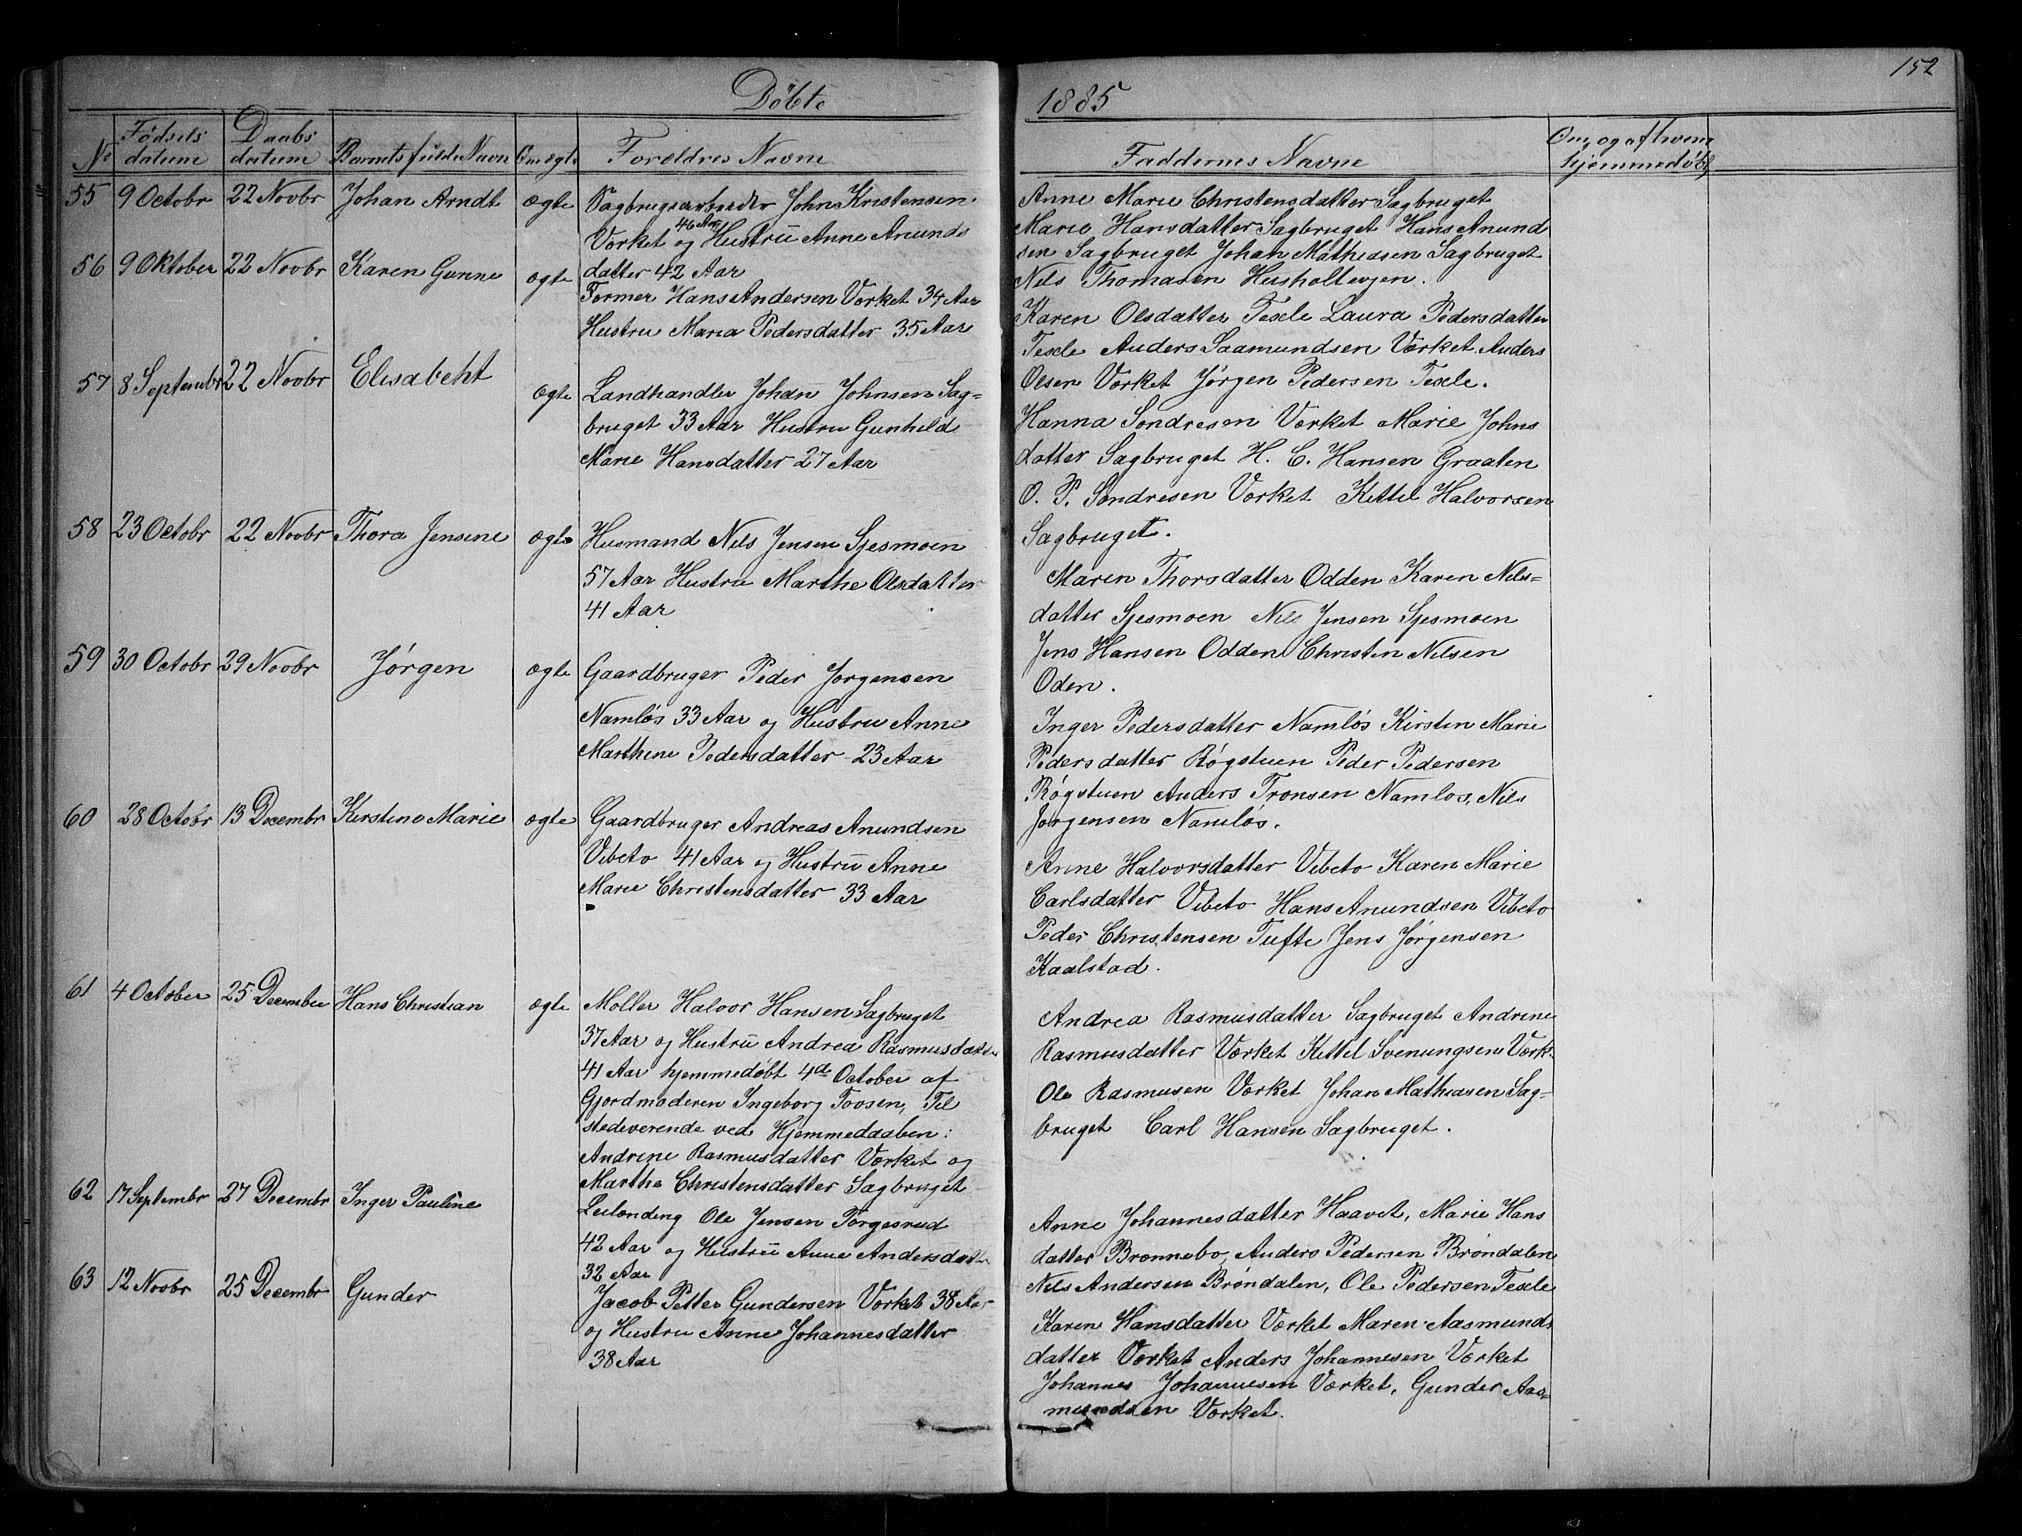 152
Döbte
1885
No
Fødsels datum
Daabs datum
Barnets fulde Navn
Om ægte
Forældres Navne
Faddernes Navne
Om, og af hvem hjemmedøbt
55 9 Octobr 22 Novbr Johan Arndt ægte
Sagbrugsarbeider John Kristensen
46 Aar
Værket og Hustru Anne Anunds
datter 42 Aar
Anne Marie Christensdatter Sagbruget
Marie Hansdatter Sagbruget Hans Anund
sen Sagbruget Johan Mathiasen Sagbruget
Nils Thomasen Husholtevjen.
56 9 Oktober 22 Novbr Karen Gunne ægte
Former Hans Andersen Værket 34 Aar
Hustru Maria Pedersdatter 35 Aar
Karen Olsdatter Texle Laura Pedersdatter
Texle Anders Saamundsen Værket Anders
Olsen Værket Jørgen Pedersen Texle.
57 8 Septembr 22 Novbr Elisabeht ægte
Landhandler Johan Johnsen Sag-
bruget 33 Aar Hustru Gunhild
Marie Hansdatter 27 Aar
Hanna Sondresen Værket Marie Johns
datter Sagbruget H. C. Hansen Graaten
O. P. Sondresen Værket Kittil Halvorsen
Sagbruget.
58 23 Octobr 22 Novbr Thora Jensine ægte
Husmand Nils Jensen Sjesmoen
57 Aar Hustru Marthe Olsdatter
41 Aar
Maren Thorsdatter Odden Karen Nils-
datter Sjesmoen Nils Jensen Sjesmoen
Jens Hansen Odden Christen Nilsen
Oden.
59 30 Octobr 29 Novbr Jørgen ægte
Gaardbruger Peder Jorgensen
Namløs 33 Aar og Hustru Anne
Marthine Pedersdatter 23 Aar
Inger Pedersdatter Namløs Kirsten Marie
Pedersdatter Røgstuen Peder Pedersen
Røgstuen Anders Tronsen Namlos, Nils
Jørgensen Namløs.
60 28 Octobr 13 Decembr Kirstine Marie ægte
Gaardbruger Andreas Anundsen
Vibeto 41 Aar og Hustru Anne
Marie Christensdatter 33 Aar
Anne Halvorsdatter Vibeto Karen Marie
Carlsdatter Vibeto Hans Anundsen Vibeto
Peder Christensen Tufte Jens Jørgensen
Kaalstad.
61 4 October 25 December Hans Christian ægte
Moller Halvor Hansen Sagbruget
37 Aar og Hustru Andrea Rasmusdatter
41 Aar hjemmedøbt 4de October af
Gjordmoderen Ingeborg Tovsen, Til
stedeverende ved Hjemmedaaben:
Andrine Rasmusdatter Værket og
Marthe Christensdatter Sagbruget
Andrea Rasmusdatter Sagbruget Andrine
Rasmusdatter Værket Kittel Svenungsen Værk.
Ole Rasmusen Værket Johan Mathiasen Sag-
bruget Carl Hansen Sagbruget.
62 17 Septembr 27 Decembr Inger Pauline
Leilending Ole Jensen Torgesrud
42 Aar og Hustru Anne Andersdatter
32 Aar
Anne Johannesdatter Haavet, Marie Hans
datter Brønnebo, Anders Pedersen Brøndalen
Nils Andersen Brøndalen, Ole Pedersen Texle
63 12 Novbr 25 Decembr Gunder
Jacob Petter Gundersen Værket 38 Aar
og Hustru Anne Johannesdatter
38 Aar
Karen Hansdatter Værket Maren Aasmunds
datter Værket Anders Johannesen Værket
Johannes Johannesen Værket, Gunder Aas-
mundsen Værket.